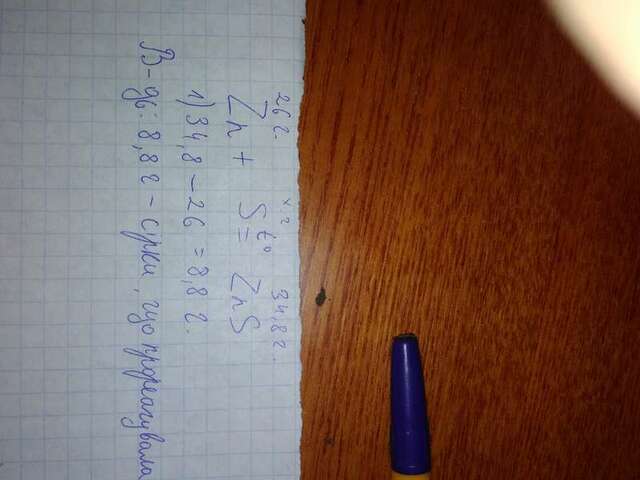 26 г. х г 34,8 г.
Zn + S t° = ZnS
1) 34,8 - 26 = 8,8 г.
В-дь: 8,8 г - сірки, що прореагувала